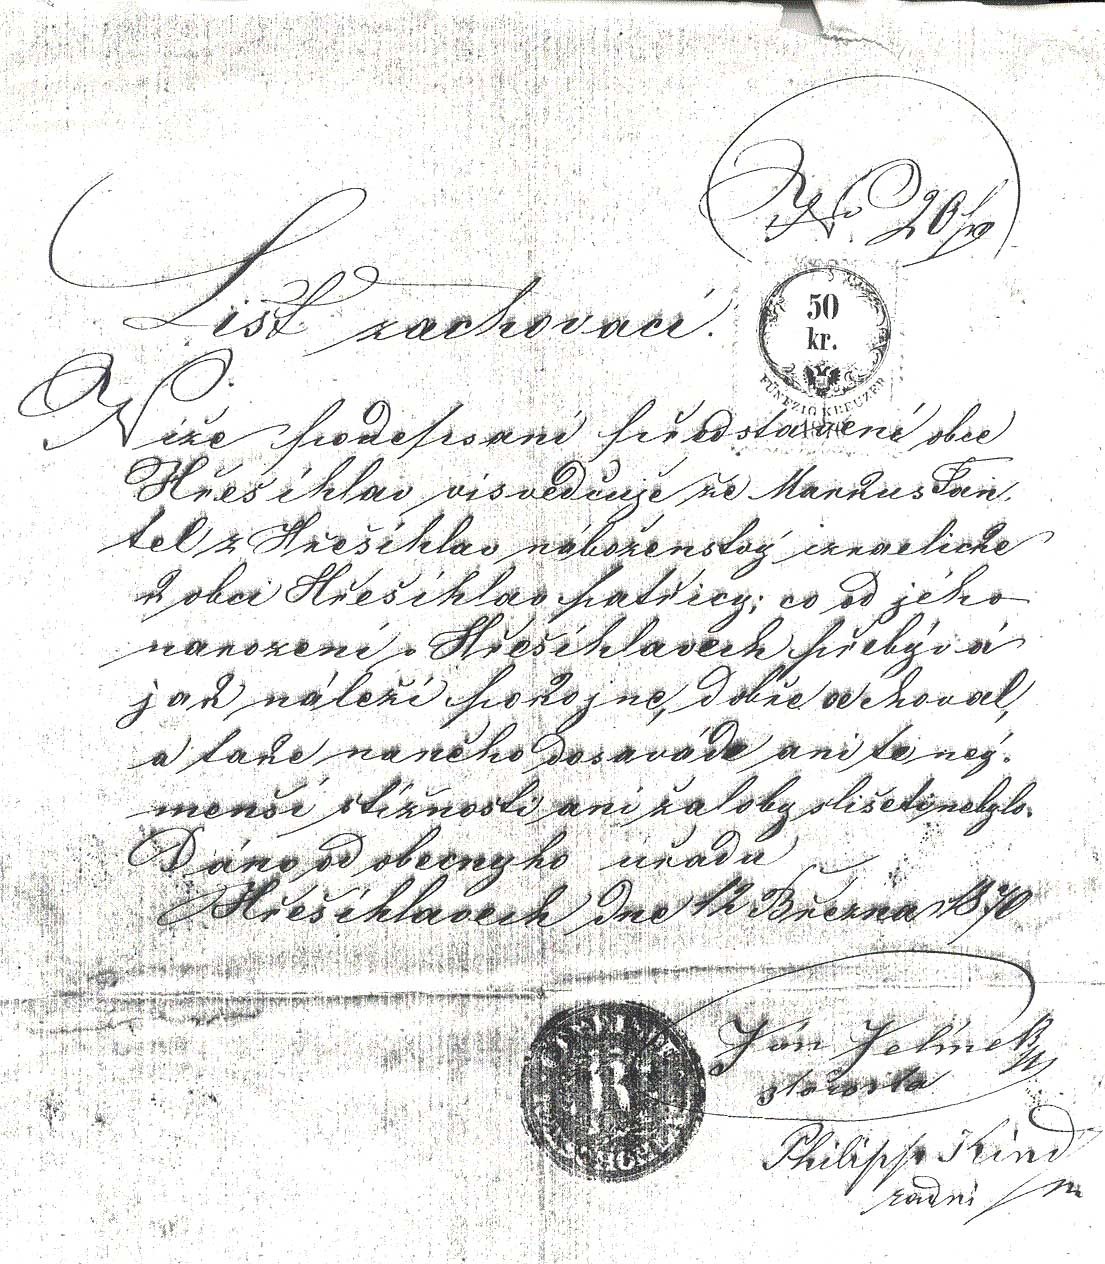 No 20
List zachovací.
50
kr.
FÜNFZIG KREUZER
Níže podepsaní představení obce
Hřešihlav visvědčuje že Markus Fan,
tel z Hřešihlav náboženstvý izraelické
k obci Hřešihlav patřicy; co od jeho
narození v Hřešihlavech přebývá
jak náleží pokojne, dobře se choval,
a take naněho dosaváde ani te nej,
menší stížnosti ani žaloby slišeti nebylo.
Dáno od obecnyho uřadu
Hřešihlavech dne 12 Března 1870
Ján Jelinek
starosta
Philipp Kind
radni